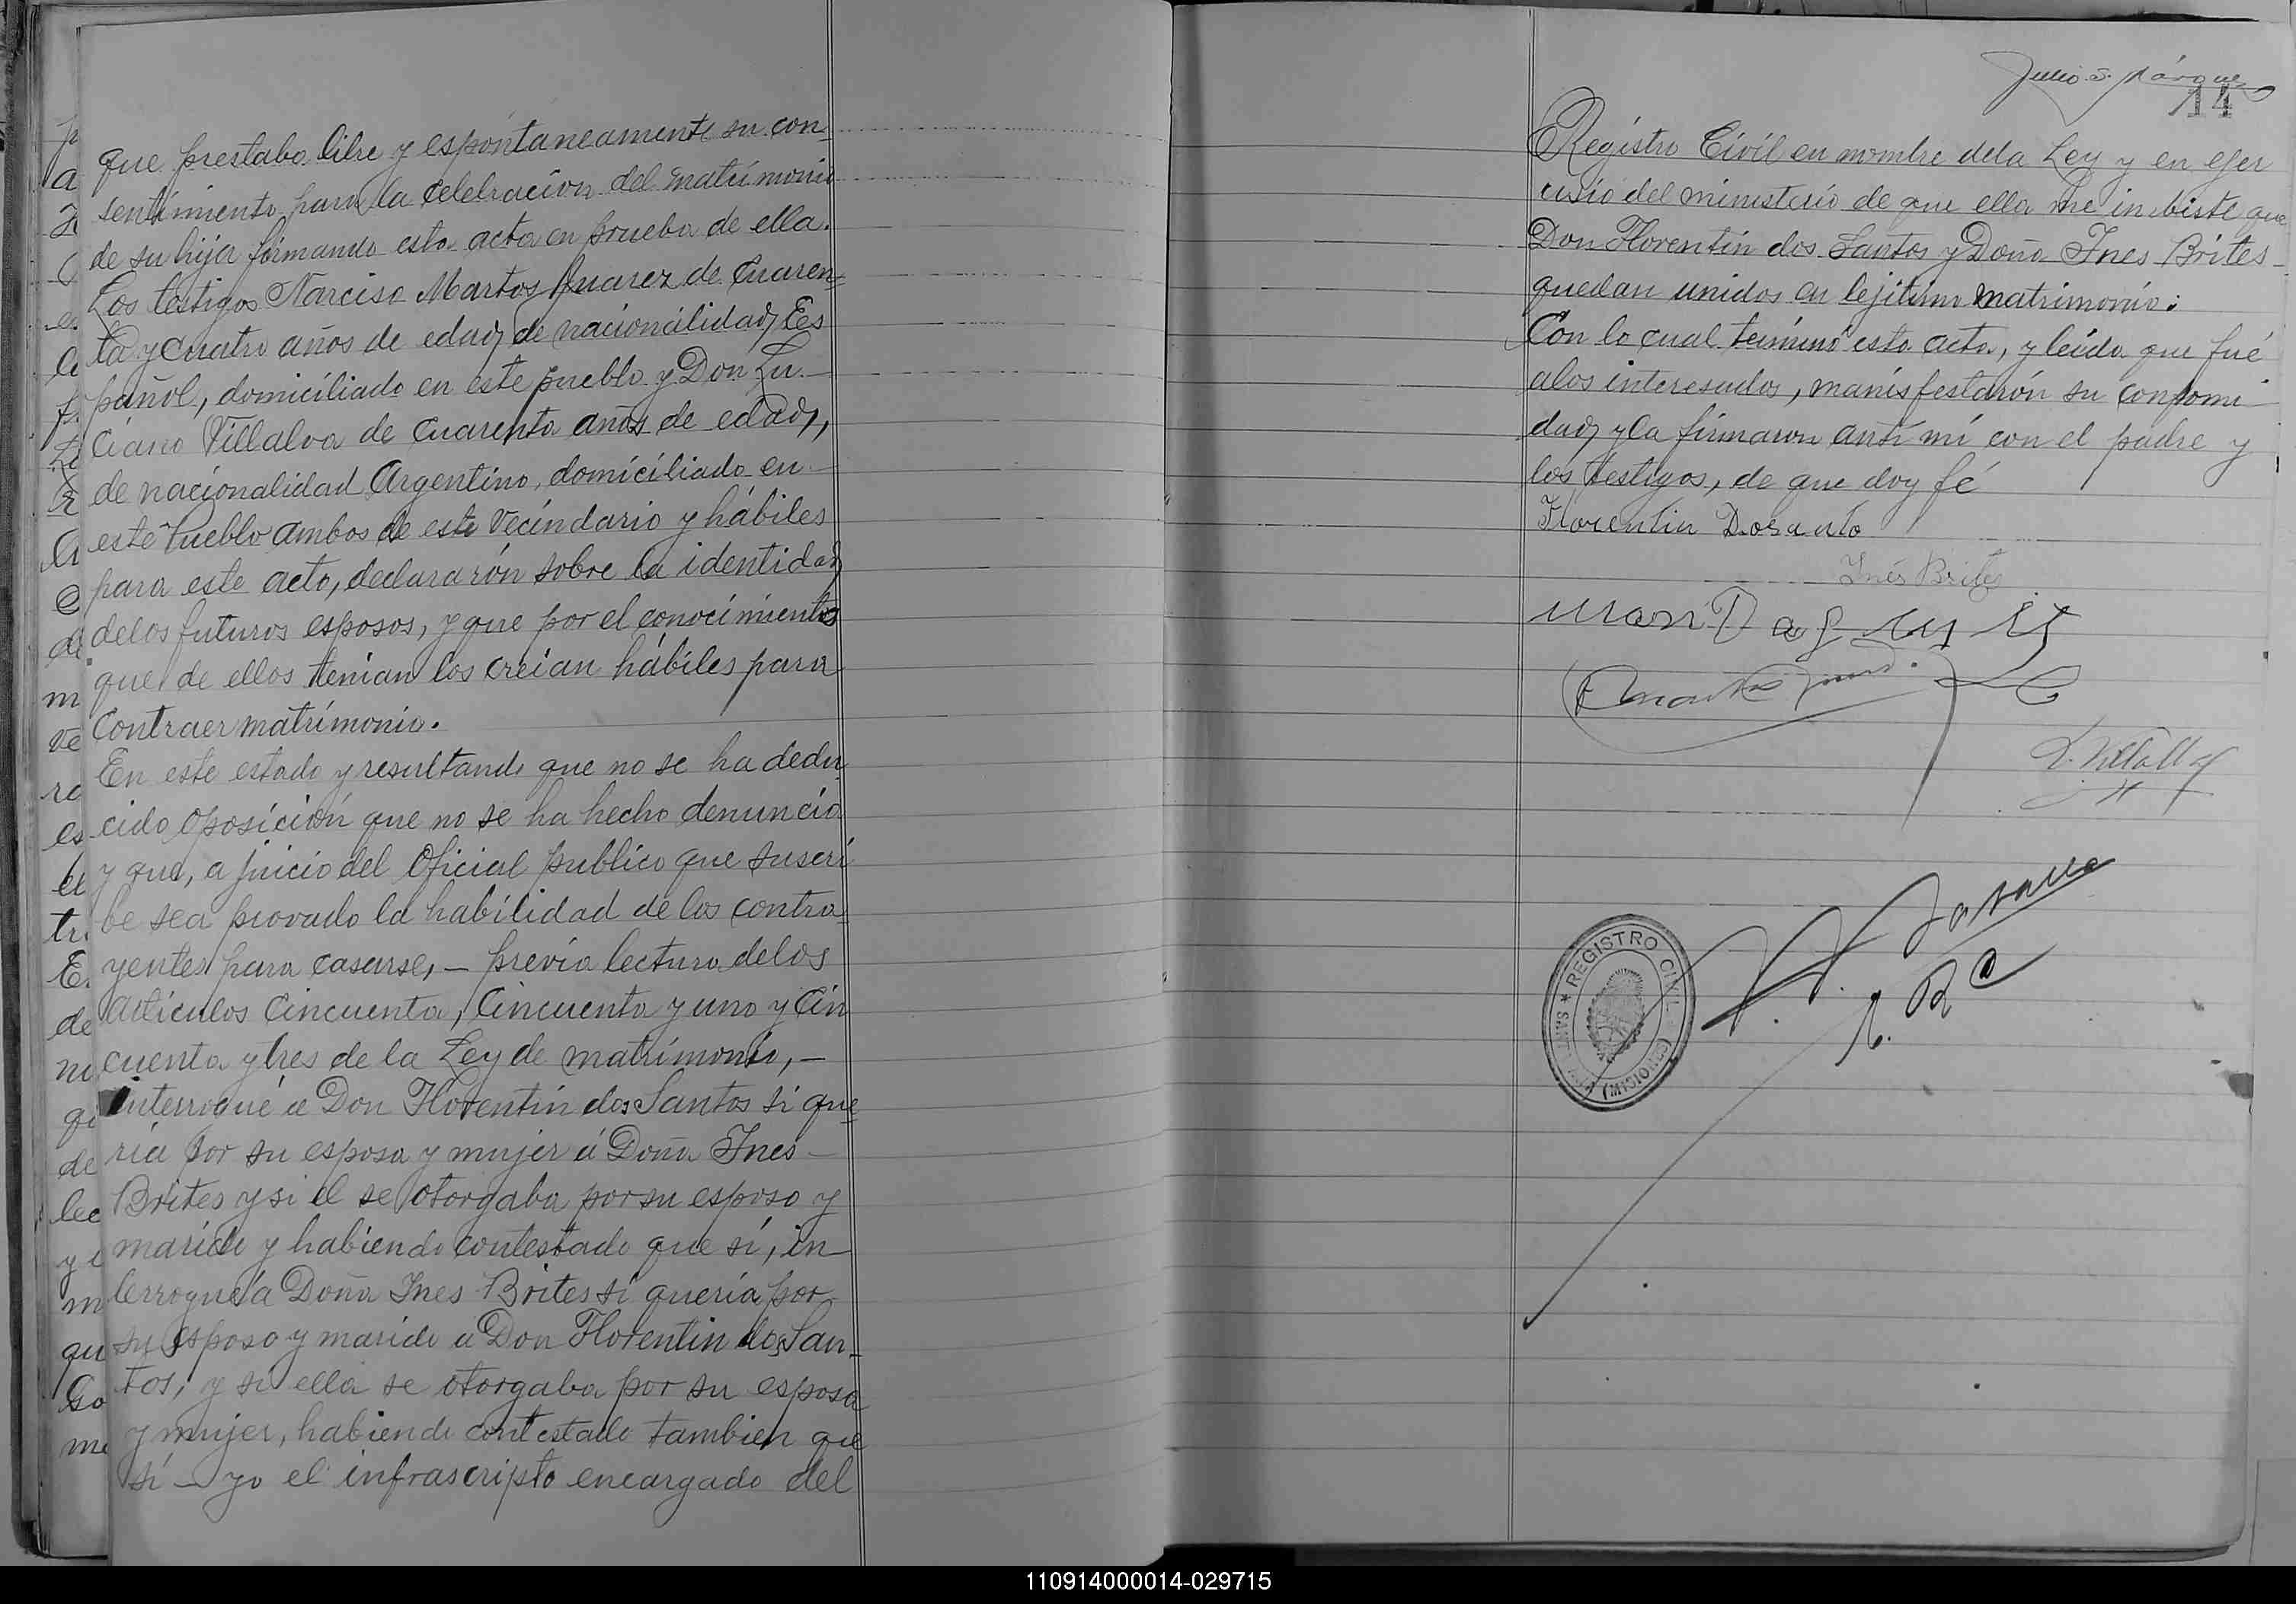 que prestaba libre y espontaneamente su con-
sentimiento para la celebración del matrimonio
de su hija firmando esta acta en prueba de ella.
Los testigos Narciso Martos Juarez de Cuaren-
ta y cuatro años de edad, de nacionalidad Es
pañol, domiciliado en este pueblo y Don Lu-
ciano Villalva de Cuarenta años de edad,
de nacionalidad Argentino, domiciliado en
este Pueblo ambos de este Vecindario y hábiles
para este acto, declararón sobre la identidad
de los futuros esposos, y que por el conocimiento
que de ellos tenian los creian hábiles para
contraer matrimonio.
En este estado y resultando que no se ha dedu
cido oposición que no se ha hecho denuncia
y que, a juicio del Oficial publico que suscri
be sea provado la habilidad de los contra-
yentes para casarse, — previa lectura delos
articulos Cincuenta, Cincuenta y uno y Cin
cuenta y tres de la Ley de matrimonio, —
interrogué a Don Florentin dos Santos si que-
ria por su esposa y mujer á Doña Ines —
Brites y si el se otorgaba por su esposo y
marido y habiendo contestado que sí, in-
terrogué á Doña Ines Brites si quería por
su esposo y marido a Don Florentin dos San-
tos, y si ella se otorgaba por su esposa
y mujer, habiendo contestado tambien que
sí — yo el infrascripto encargado del
Julio S. Márquez
14
Registro Civil en nombre dela Ley y en ejer
cisio del ministerio de que ella me inbiste que
Don Florentin dos Santos y Doña Ines Brites —
quedan unidos en lejitimo matrimonio.
Con lo cual terminó esta acta, y leida que fué
alos interesados, manisfestarón su conformi-
dad y la firmaron anti mí con el padre y
los testigos, de que doy fé
Florentin Dosanto
Inés Brites
L. Villalva
REGISTRO CIVIL
(MISIONES)
110914000014-029715